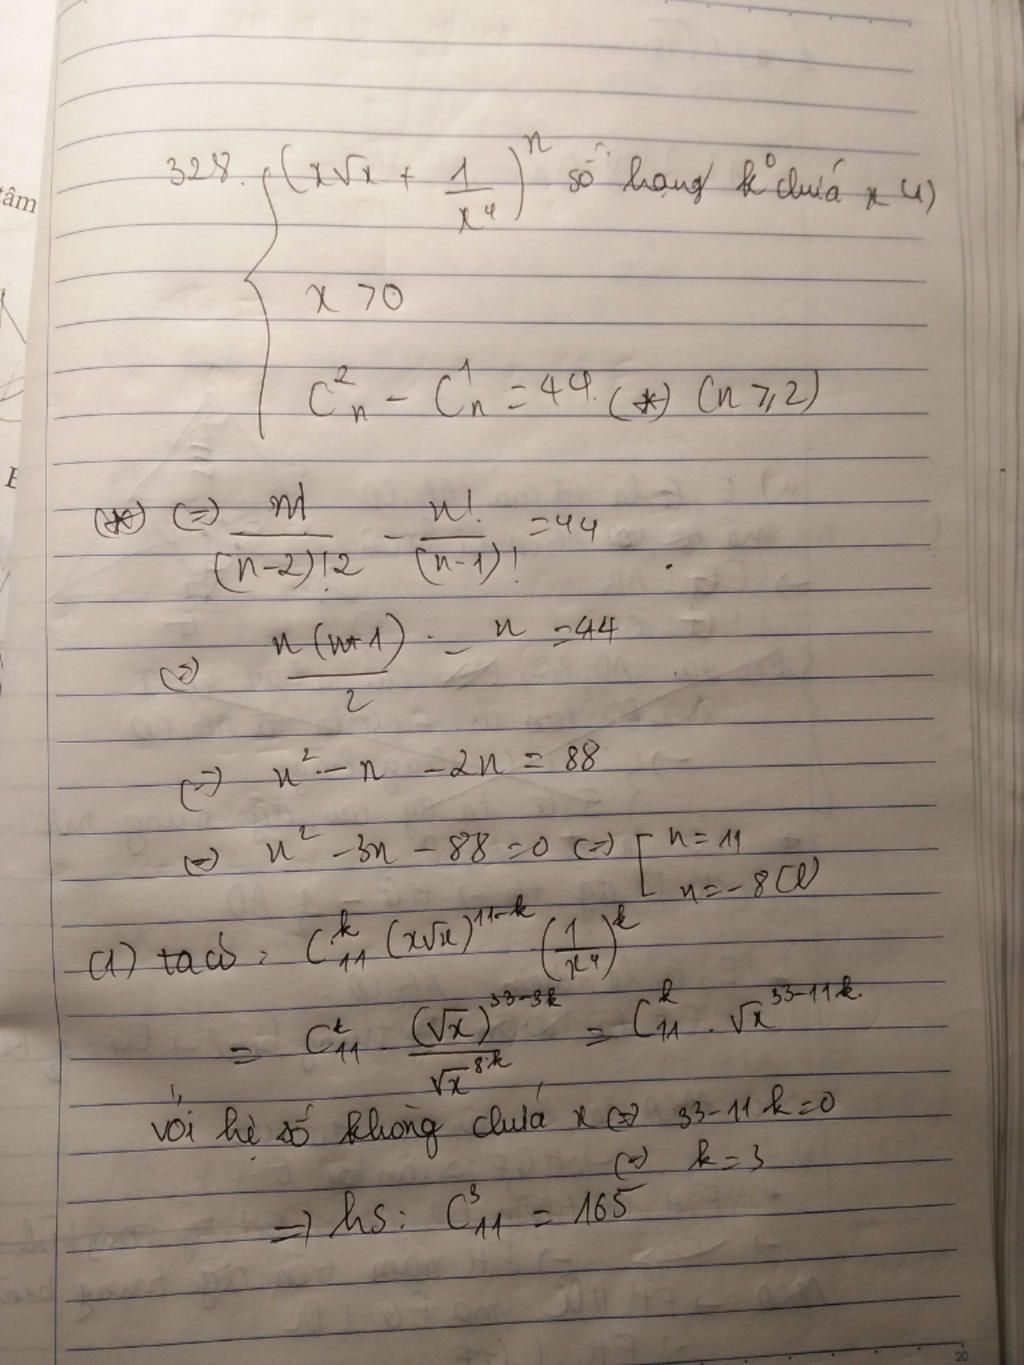 tâm
328. (x√x + 1/x⁴)ⁿ số hạng k⁰ chứá x (1)
x > 0
C²ₙ - C¹ₙ = 44. (*) (n ≥ 2)
(*) (=) n!/(n-2)!2 - n!/(n-1)! = 44
(=) n(n-1)/2 - n = 44
(=) n² - n - 2n = 88
(=) n² - 3n - 88 = 0 (=) [ n = 11
n = -8 (l)
(1) ta có: Cᵏ₁₁ (x√x)¹¹⁻ᵏ (1/x⁴)ᵏ
= Cᵏ₁₁ . (√x)³³⁻³ᵏ/√x⁸·ᵏ = Cᵏ₁₁ . √x³³⁻¹¹ᵏ.
với hệ số không chứá x (=) 33 - 11k = 0
(=) k = 3
=) hs: C³₁₁ = 165
20